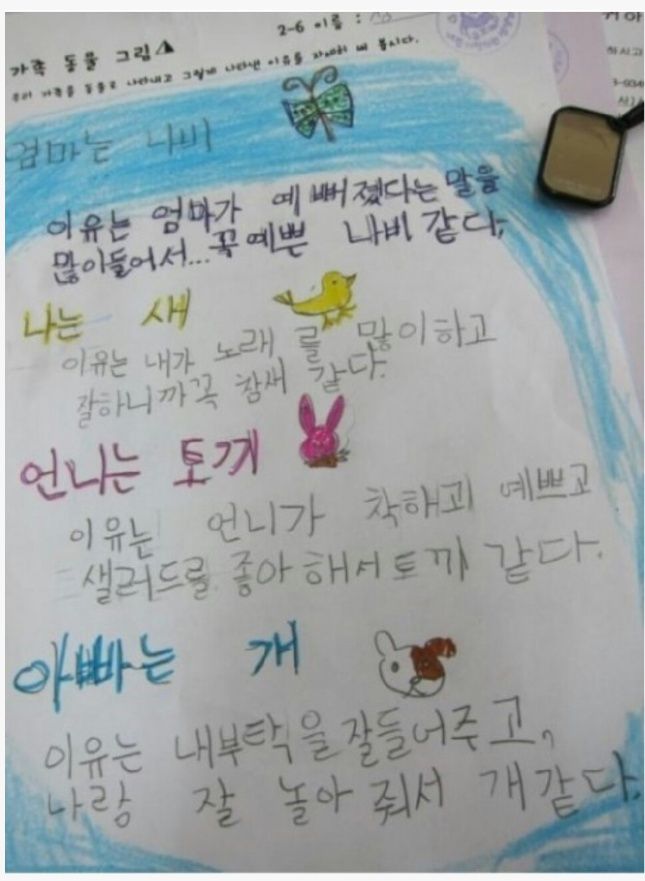 2-6 이름 :
가족 동물 그림
우리 가족을 동물로 나타내고 그렇게 나타낸 이유를 자세히 써 봅시다.
엄마는 나비
이유는 엄마가 예뻐졌다는 말을
많이들어서...꼭예쁜 나비 같다,
나는 새
이유는 내가 노래를 많이하고
잘하니까꼭 참새 같다.
언니는 토끼
이유는 언니가 착해고 예쁘고
샐러드를 좋아해서토끼 같다.
아빠는 개
이유는 내부탁을잘들어주고,
나랑 잘 놀아 줘서 개같다.